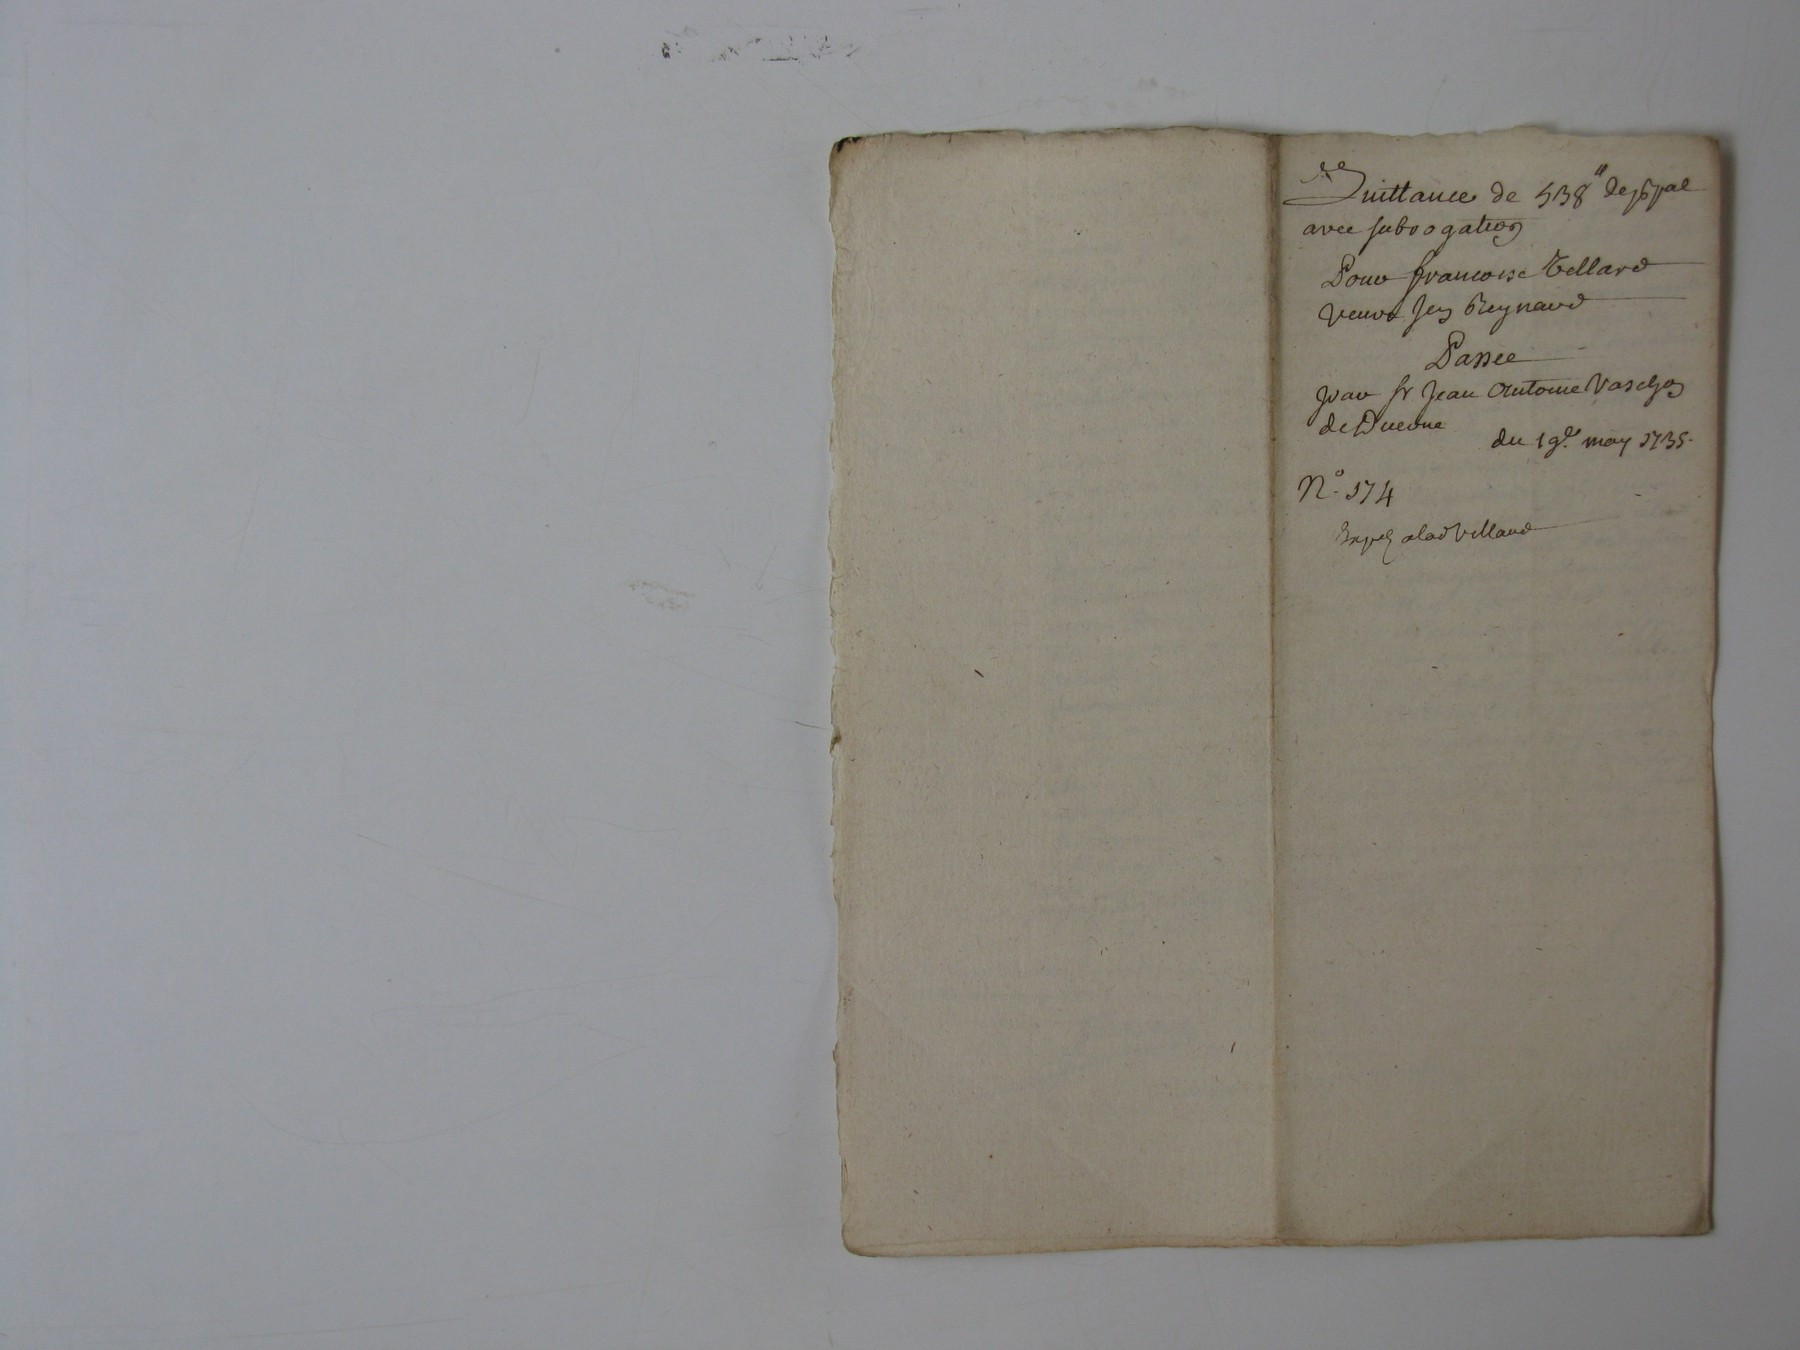 Quittance de 538ᵗᵗ de ppal
avec subrogation
Pour francoise Tellard
veuve Jen Reynaud
Passée
par sr Jean Antoine Vaschon
de Duerne
du 19e. may 1735.
No. 174
Exped alad vellard